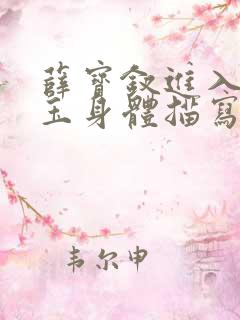 薛寶釵進入
玉身體描寫
韦尔申